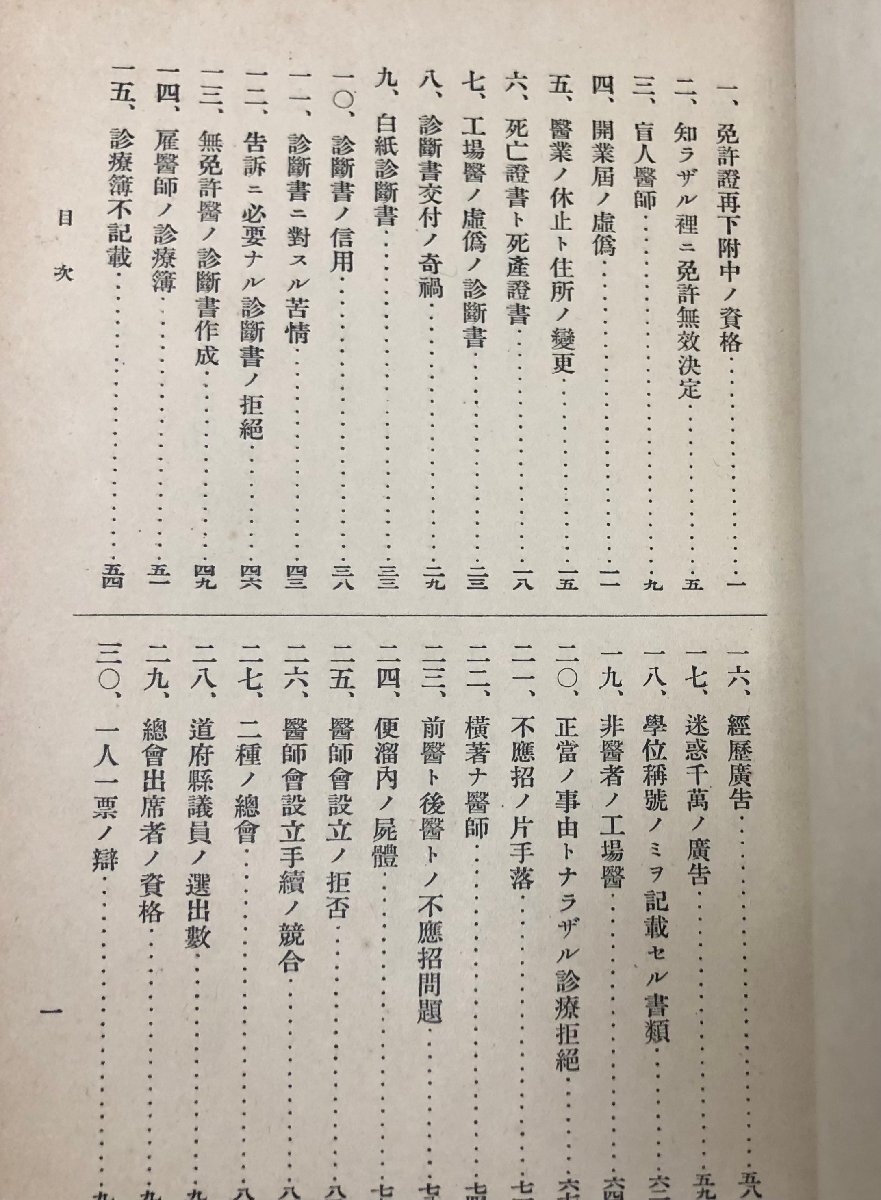 一、免許證再下附中ノ資格……一
二、知ラザル裡ニ免許無效決定……五
三、盲人醫師……九
四、開業屆ノ虛僞……一一
五、醫業ノ休止ト住所ノ變更……一五
六、死亡證書ト死產證書……一八
七、工場醫ノ虛僞ノ診斷書……二三
八、診斷書交付ノ奇禍……二九
九、白紙診斷書……三三
一〇、診斷書ノ信用……三八
一一、診斷書ニ對スル苦情……四三
一二、告訴ニ必要ナル診斷書ノ拒絕……四六
一三、無免許醫ノ診斷書作成……四九
一四、雇醫師ノ診療簿……五一
一五、診療簿不記載……五四
一六、經歷廣告……五八
一七、迷惑千萬ノ廣告……五九
一八、學位稱號ノミヲ記載セル書類……六二
一九、非醫者ノ工場醫……六四
二〇、正當ノ事由トナラザル診療拒絕……六
二一、不應招ノ片手落……七
二二、橫著ナ醫師……七
二三、前醫ト後醫トノ不應招問題……七
二四、便溜內ノ屍體……七
二五、醫師會設立ノ拒否……八
二六、醫師會設立手續ノ競合……八
二七、二種ノ總會……八
二八、道府縣議員ノ選出數……九
二九、總會出席者ノ資格……九
三〇、一人一票ノ辯……九
目次
一